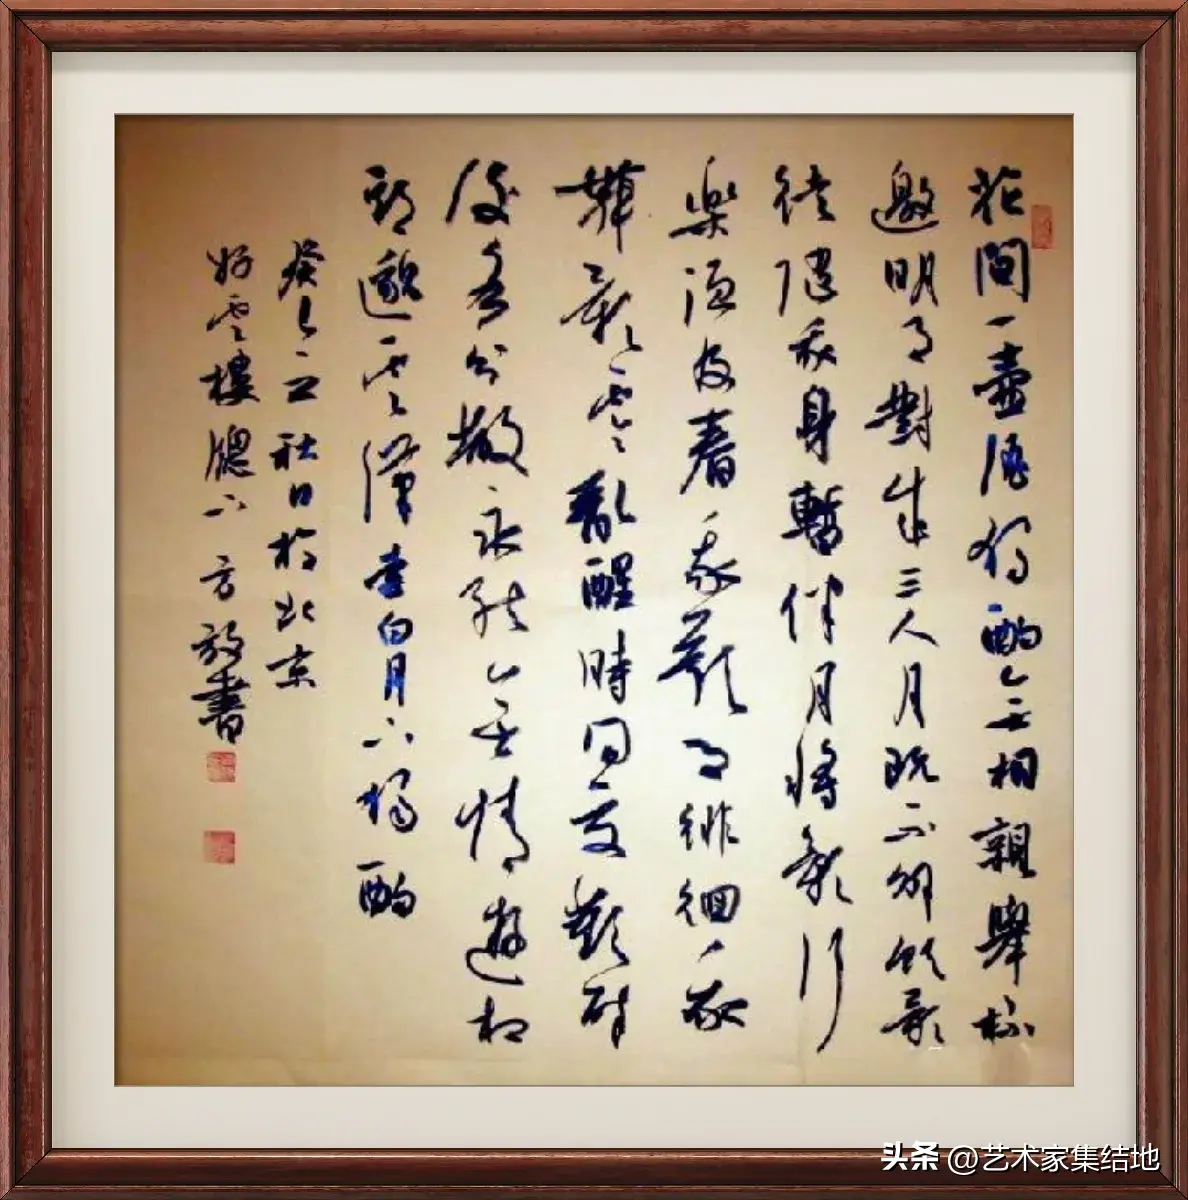 花間一壺酒獨酌無相親舉杯
邀明月對成三人月既不解飲影
徒隨我身暫伴月將影行
樂須及春我歌月徘徊我
舞影零亂醒時同交歡醉
後各分散永結無情遊相
期邈雲漢李白月下獨酌
癸巳立秋日於北京
好雲樓牕下 方放書
头条 @艺术家集结地